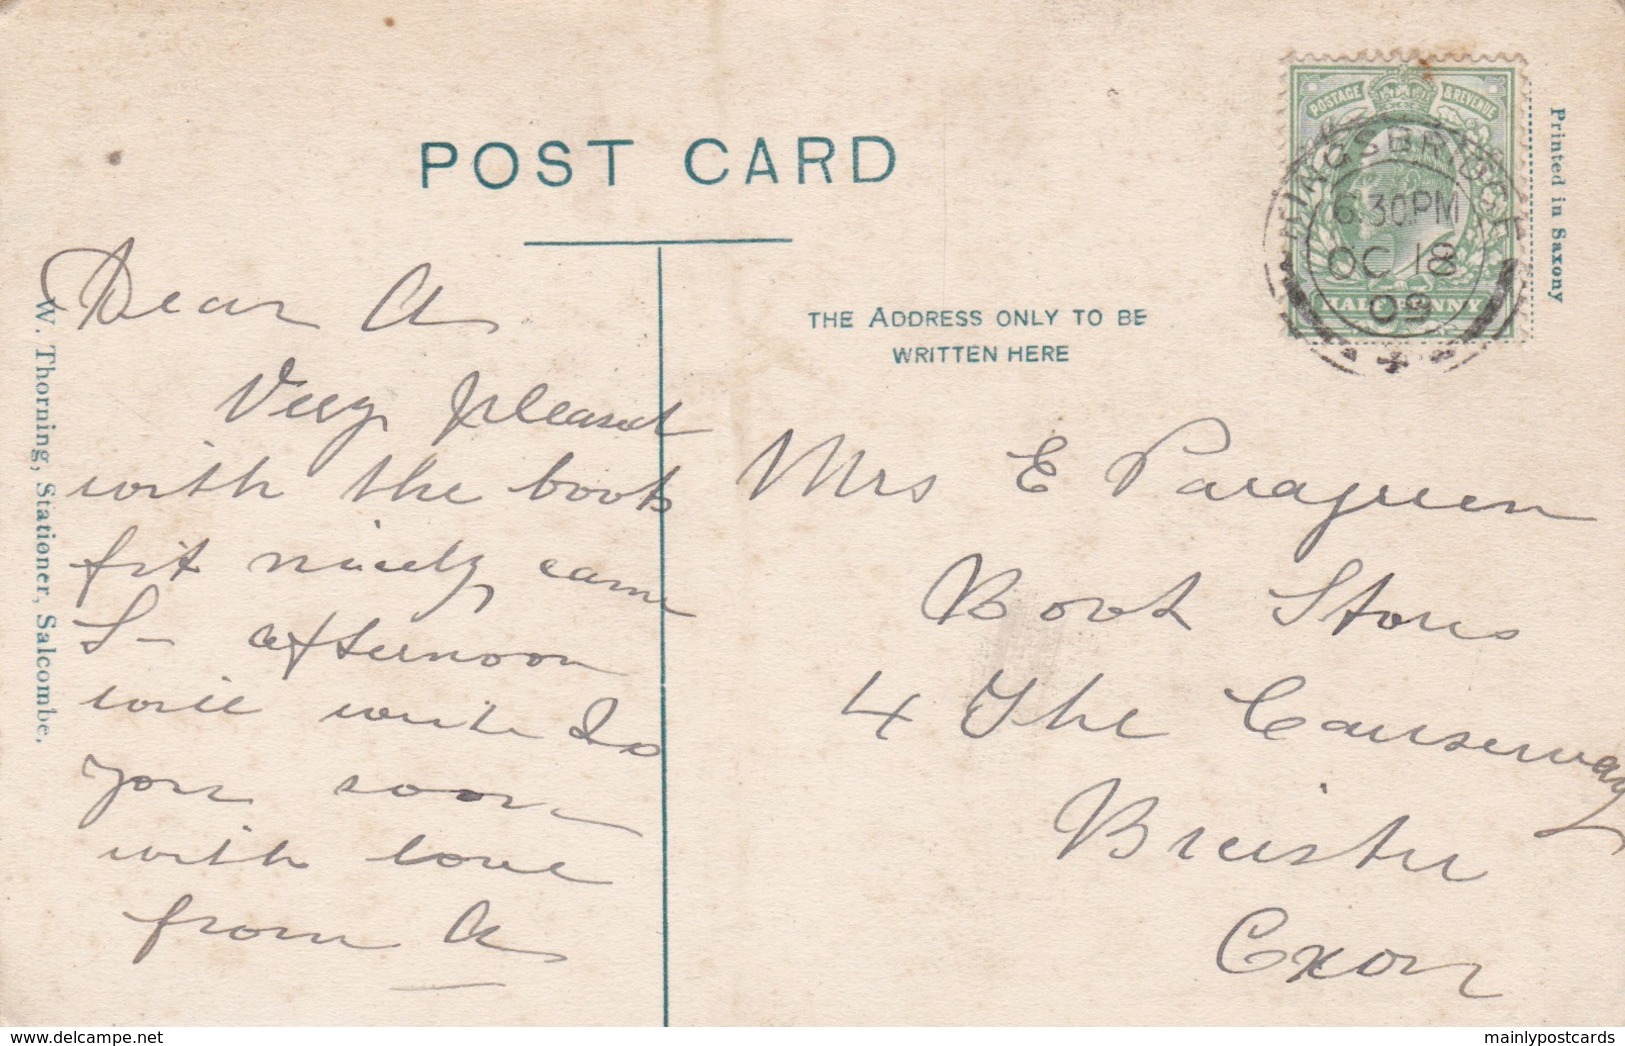 POST CARD
THE ADDRESS ONLY TO BE
WRITTEN HERE
Printed in Saxony
W. Thorning, Stationer, Salcombe.
POSTAGE & REVENUE
HALFPENNY
KINGSBRIDGE
6.30PM
OC 18
09
Dear A
Very pleased
with the boots
fit nicely came
S- afternoon
will write to
you soon
with love
from A
Mrs E
Book Stores
4 The Causeway
Bicester
Oxon
delcampe.net
mainlypostcards